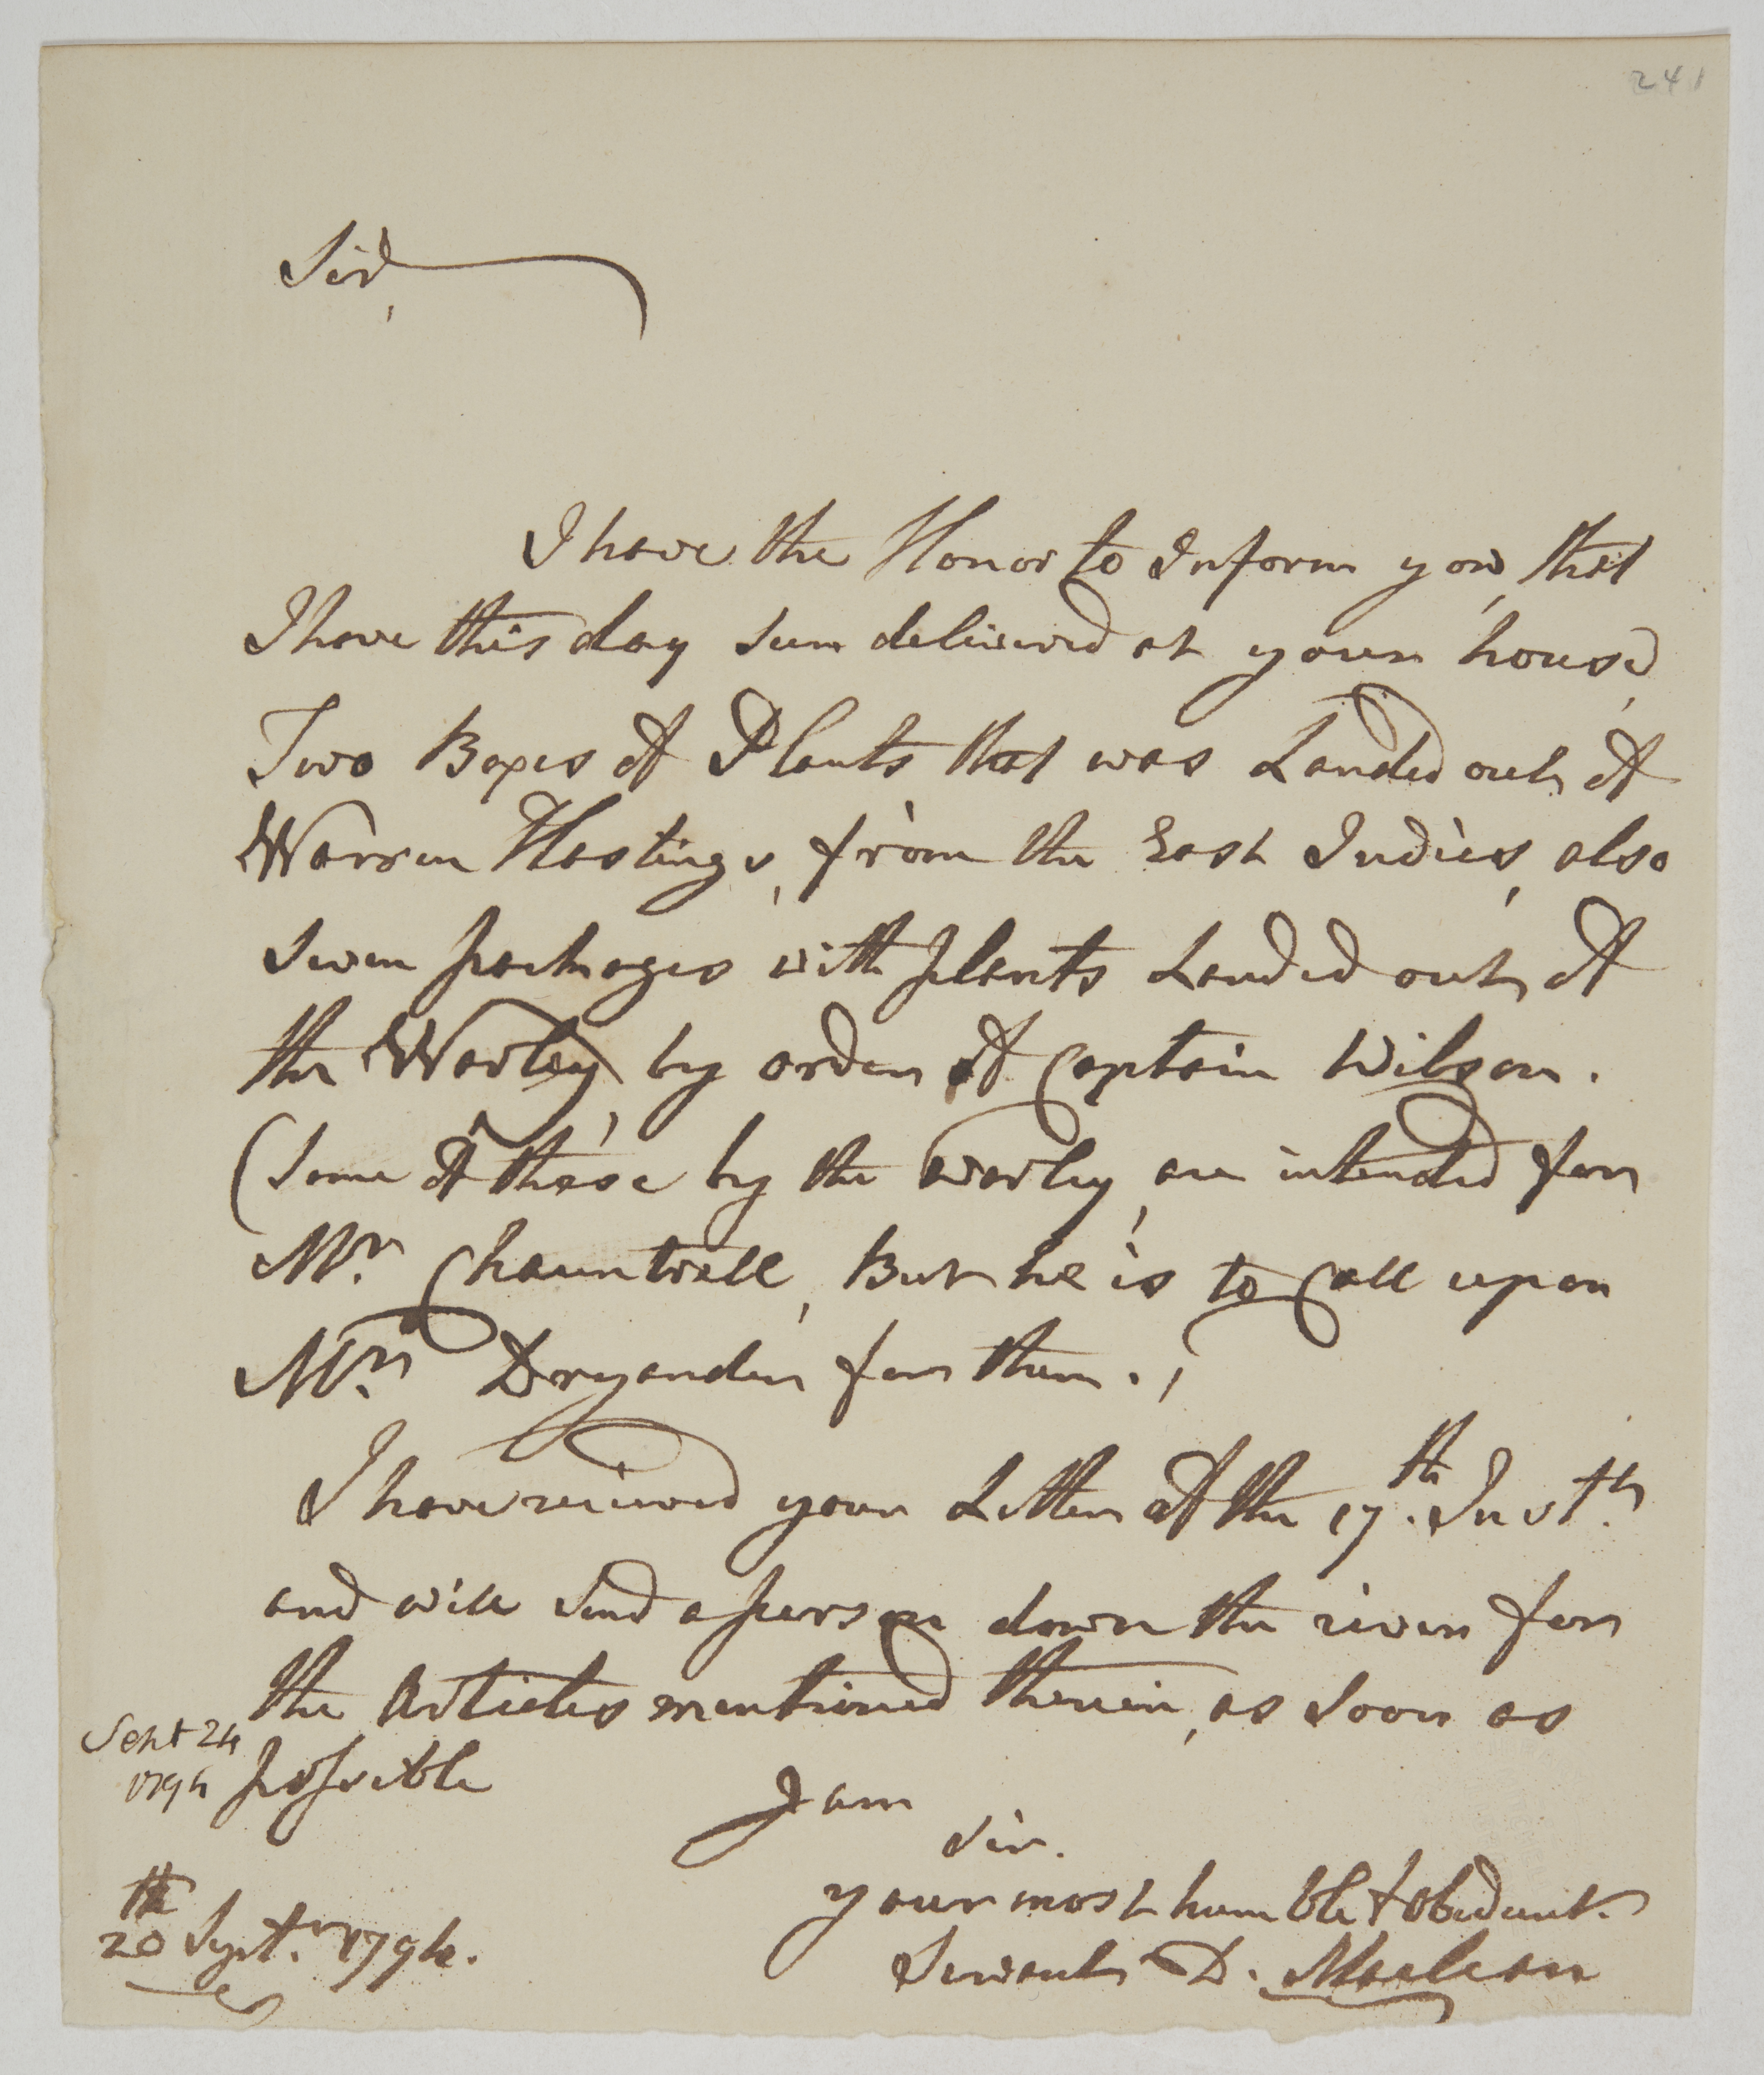 241
Sir,
I have the Honor to Inform you, that
I have this day seen delivered at your house,
Two Boxes of Plants that was Landed out of
Warren Hastings, from the East Indies, also
seven packages with plants Landed out of
the Warley, by order of Captain Wilson.
(Some of these by the Warley, are intended for
Mr. Chauntrell, But he is to Call upon
Mr. Dryander for them.)
I have received your Letter of the 17.th Inst.
and will send a person down the river for
the Articles mentioned therein, as soon as
possible
Sept 24
1794
I am
Sir.
your most humble & obedient.
Servant D. Maclean
20th Sept.r 1794.